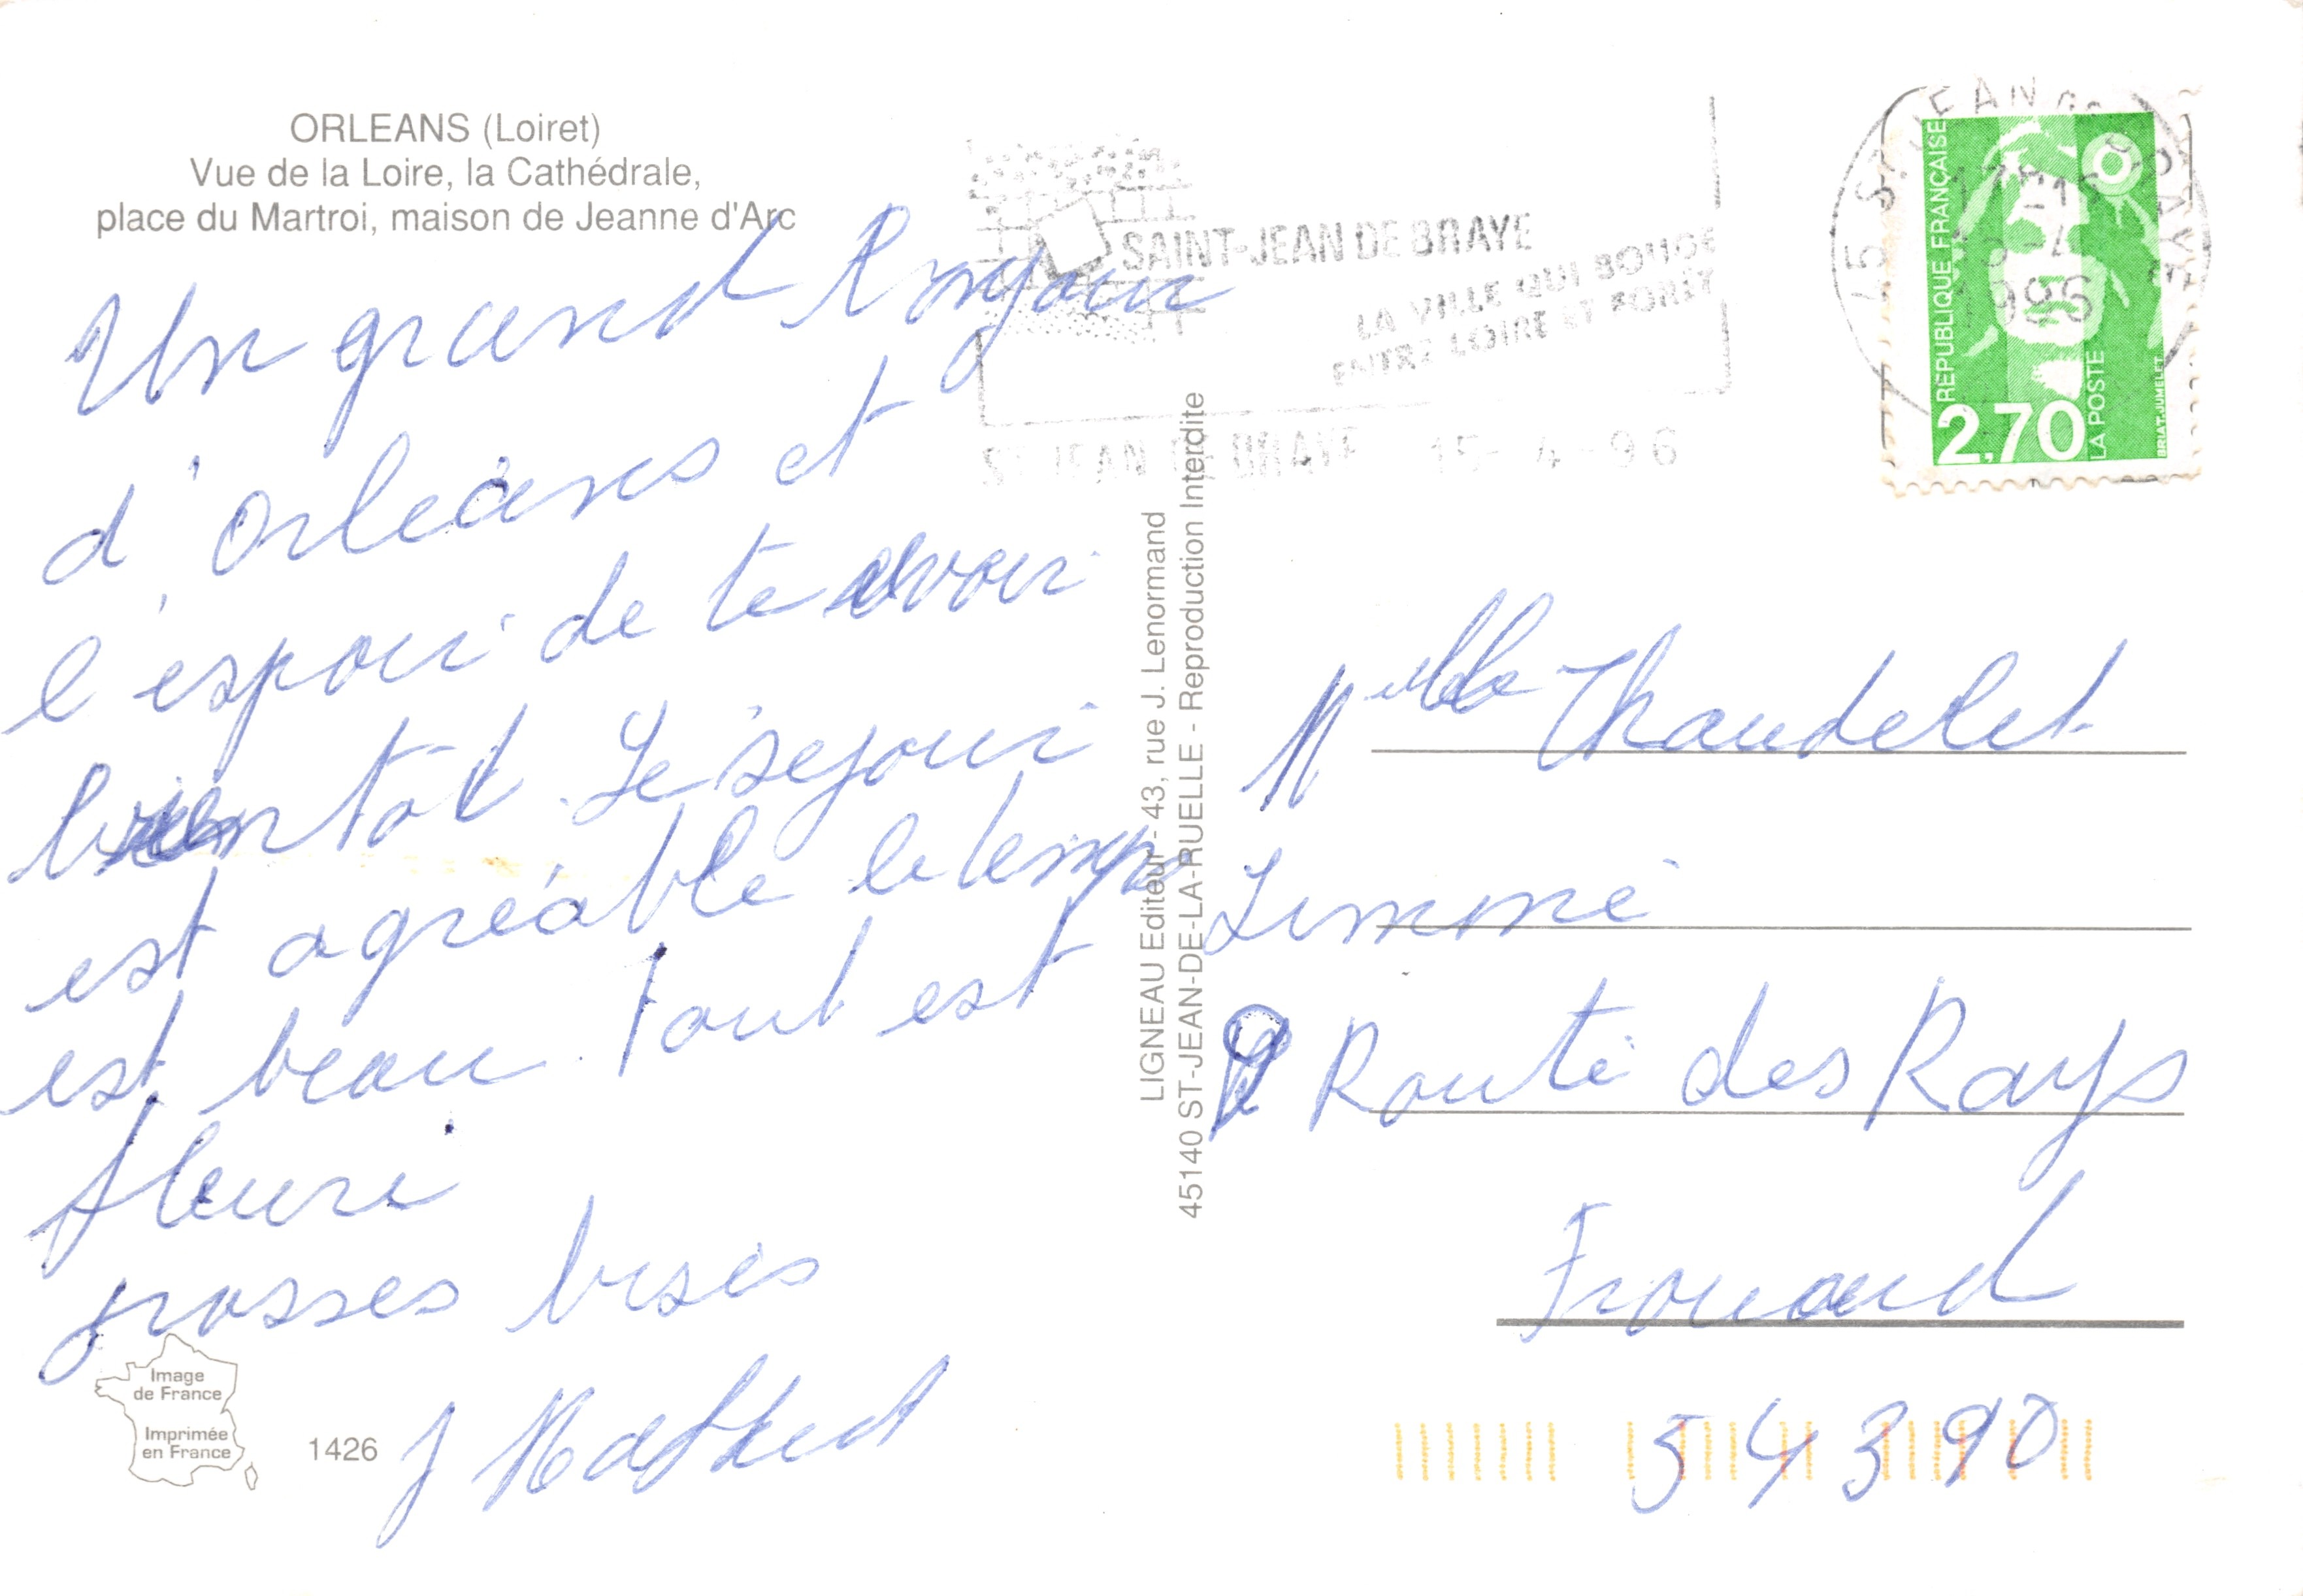 ORLEANS (Loiret)
Vue de la Loire, la Cathédrale,
place du Martroi, maison de Jeanne d'Arc
Un grand Bonjour
d'Orleans et
l'espoir de te
bientot. Le séjour
est agréable le temps
est beau. Tout est
fleuri
grosses bises
J
Image
de France
Imprimée
en France
1426
SAINT-JEAN DE BRAYE
LA VILLE QUI BOUGE
ENTRE LOIRE ET FORÊT
ST JEAN DE BRAYE 15-4-96
LIGNEAU Editeur - 43, rue J. Lenormand
45140 ST-JEAN-DE-LA-RUELLE - Reproduction Interdite
REPUBLIQUE FRANÇAISE
2,70
LA POSTE
BRIAT-JUMELET
Melle Thaudelet
Route des Rays
Frouard
54390